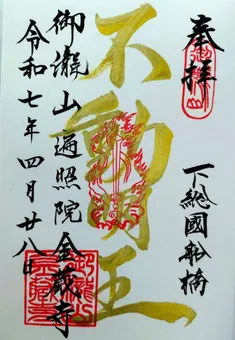 奉拝
下総國船橋
不動明王
御瀧山遍照院金蔵寺
令和七年四月廿八日